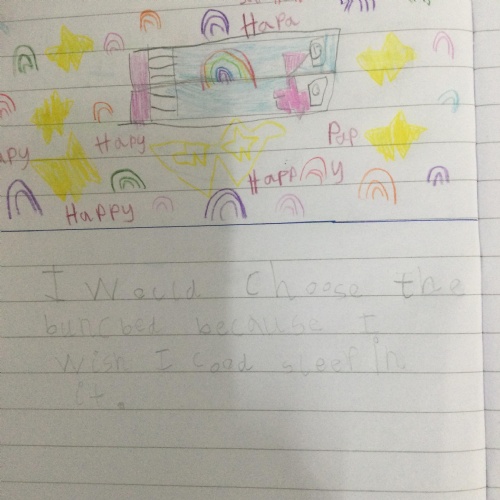 Hapa
Hapy
Pap
apy
Happy
Happy
I Would Choose the
buncbed because I
wish I cood sleep in
it.